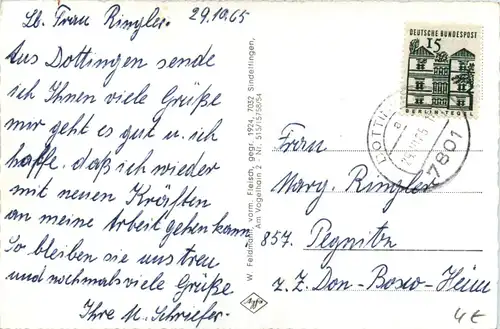 Lb. Frau Ringler. 29.10.65
Aus Dottingen sende
ich Ihnen viele Grüße
mir geht es gut u. ich
hoffe, daß ich wieder
mit neuen Kräften
an meine Arbeit gehen kann.
So bleiben sie uns treu
und nochmals viele Grüße
Ihre M. Schriefer.
W. Feldmann, vorm. Fleisch, gegr. 1924, 7032 Sindelfingen,
Am Vogelhain 2 - Nr. 515/15/758/54
DEUTSCHE BUNDESPOST
15
BERLIN-TEGEL
7801
Frau
Marg. Ringler
857. Pegnitz
z. Z. Don-Bosco-Heim
4€